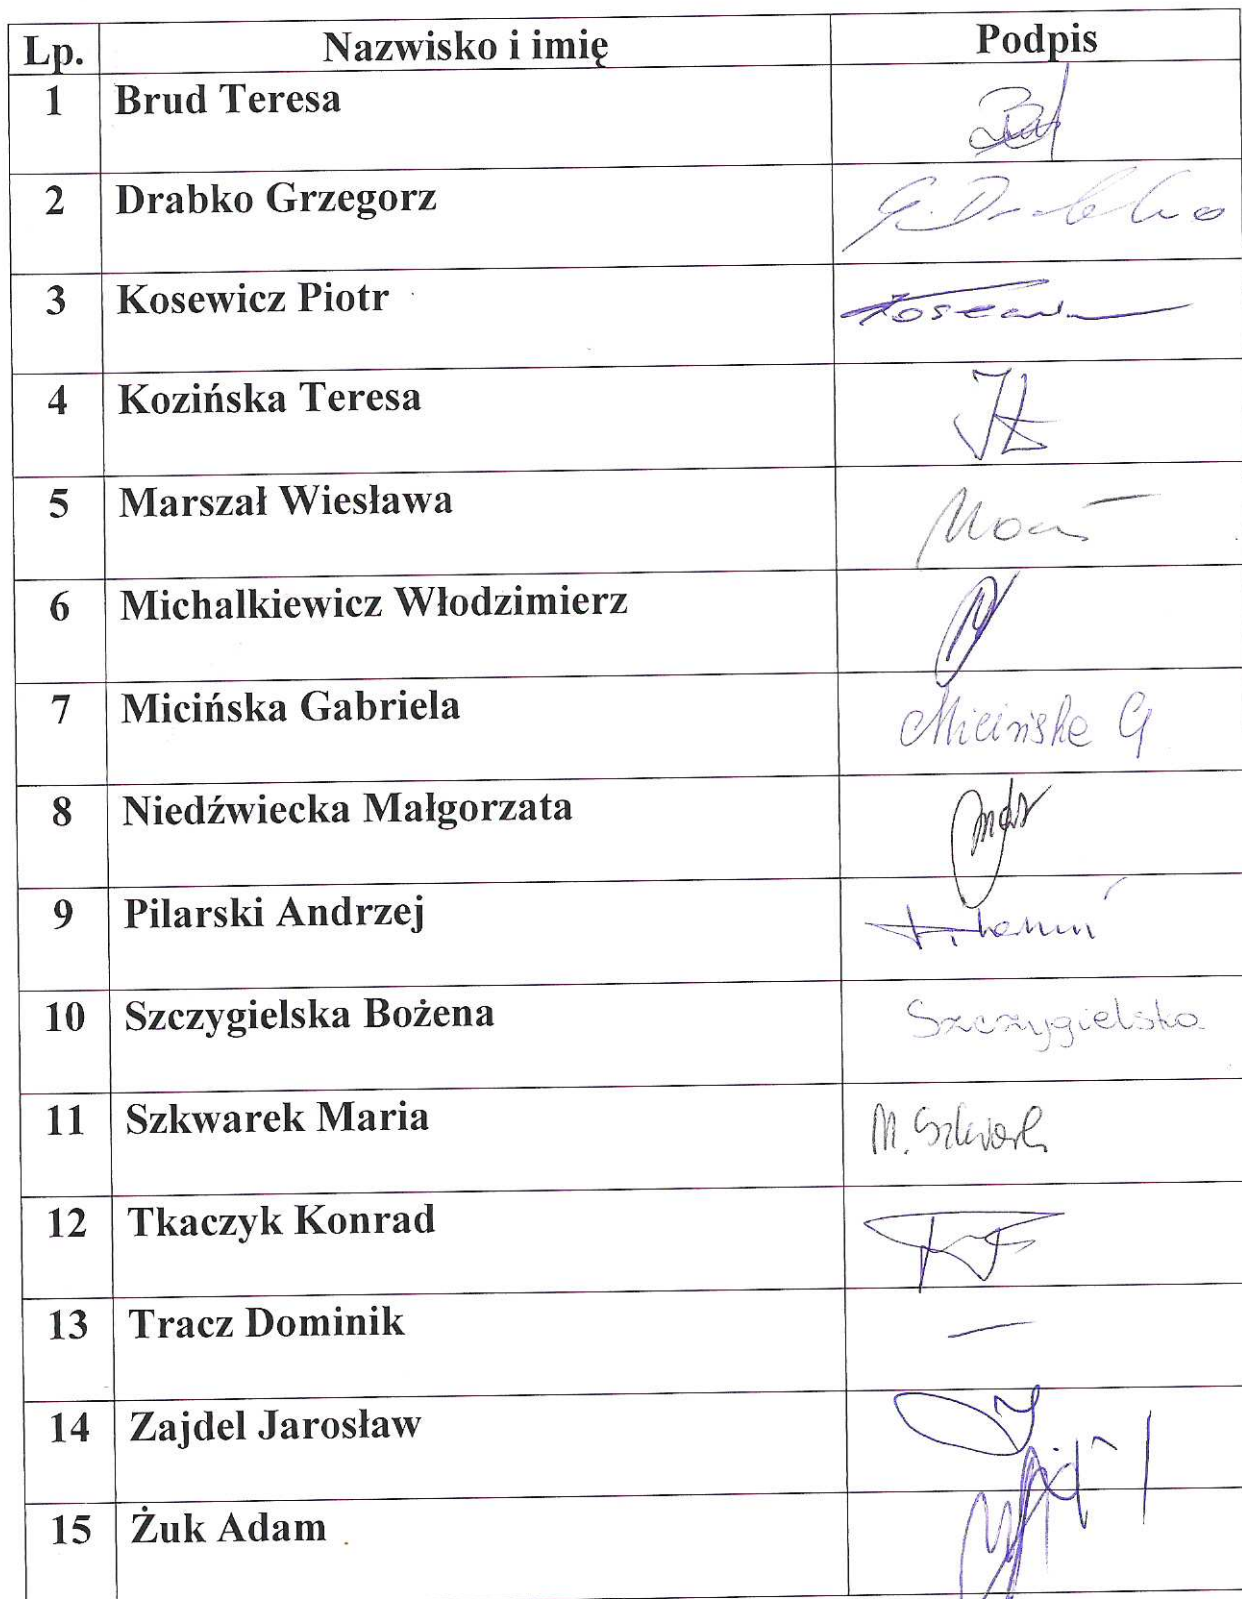 Lp. Nazwisko i imię Podpis
1 Brud Teresa
2 Drabko Grzegorz G. Drabko
3 Kosewicz Piotr
4 Kozińska Teresa
5 Marszał Wiesława
6 Michalkiewicz Włodzimierz
7 Micińska Gabriela Micińska G
8 Niedźwiecka Małgorzata
9 Pilarski Andrzej
10 Szczygielska Bożena Szczygielska
11 Szkwarek Maria M. Szkwarek
12 Tkaczyk Konrad
13 Tracz Dominik —
14 Zajdel Jarosław
15 Żuk Adam